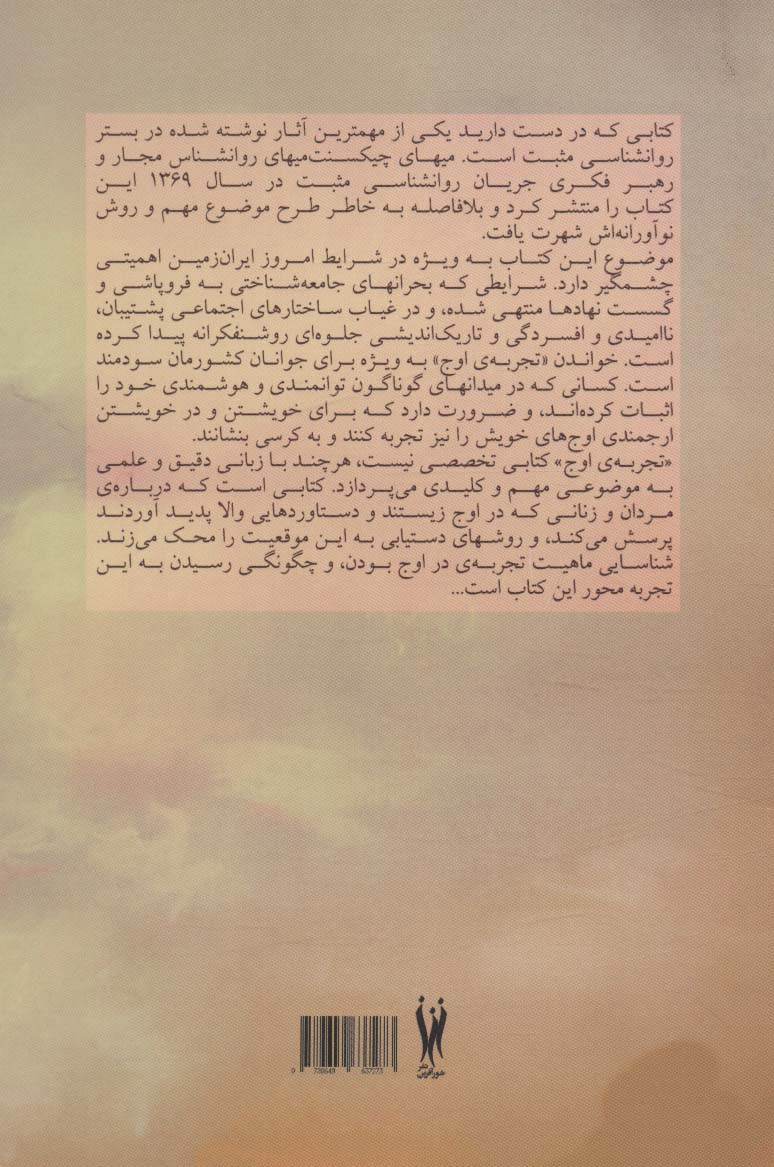 کتابی که در دست دارید یکی از مهمترین آثار نوشته شده در بستر
روانشناسی مثبت است. میهای چیکسنت‌میهای روانشناس مجار و
رهبر فکری جریان روانشناسی مثبت در سال ۱۳۶۹ این
کتاب را منتشر کرد و بلافاصله به خاطر طرح موضوع مهم و روش
نوآورانه‌اش شهرت یافت.
موضوع این کتاب به ویژه در شرایط امروز ایران‌زمین اهمیتی
چشمگیر دارد. شرایطی که بحرانهای جامعه‌شناختی به فروپاشی و
گسست نهادها منتهی شده، و در غیاب ساختارهای اجتماعی پشتیبان،
ناامیدی و افسردگی و تاریک‌اندیشی جلوه‌ای روشنفکرانه پیدا کرده
است. خواندن «تجربه‌ی اوج» به ویژه برای جوانان کشورمان سودمند
است. کسانی که در میدانهای گوناگون توانمندی و هوشمندی خود را
اثبات کرده‌اند، و ضرورت دارد که برای خویشتن و در خویشتن
ارجمندی اوج‌های خویش را نیز تجربه کنند و به کرسی بنشانند.
«تجربه‌ی اوج» کتابی تخصصی نیست، هرچند با زبانی دقیق و علمی
به موضوعی مهم و کلیدی می‌پردازد. کتابی است که درباره‌ی
مردان و زنانی که در اوج زیستند و دستاوردهایی والا پدید آوردند
پرسش می‌کند، و روشهای دستیابی به این موقعیت را محک می‌زند.
شناسایی ماهیت تجربه‌ی در اوج بودن، و چگونگی رسیدن به این
تجربه محور این کتاب است...
نشر
شورآفرین
0 720649 637273